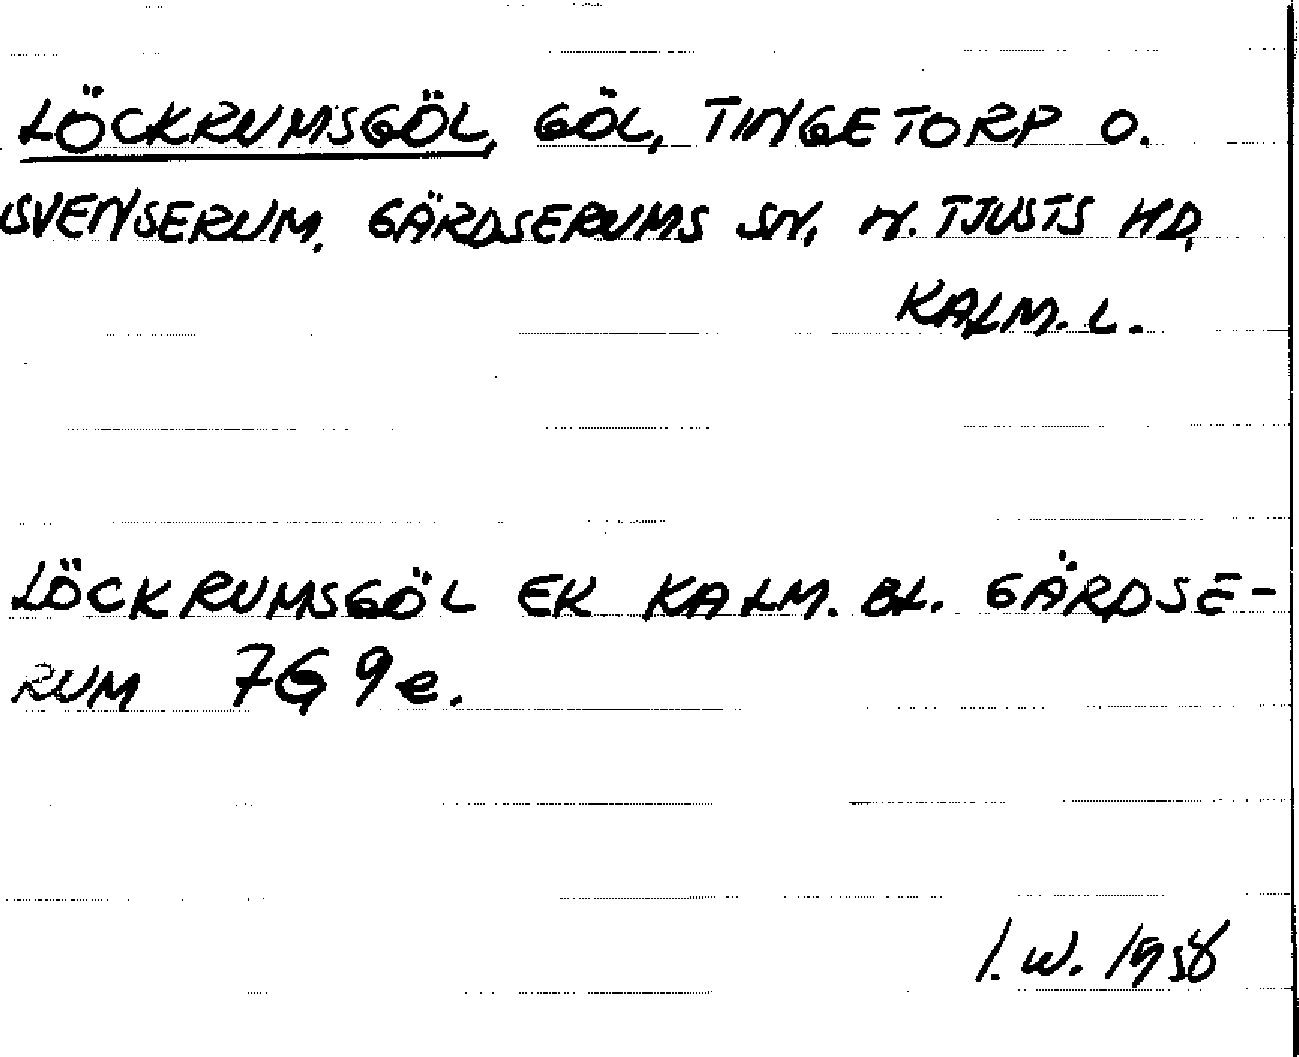 LÖCKRUMSGÖL, GÖL, TINGETORP O.
SVENSERUM, GÄRDSERUMS SN, N. TJUSTS HD,
KALM. L.
LÖCKRUMSGÖL EK KALM. BL. GÄRDSE-
RUM 7G 9e.
I. W. 1958